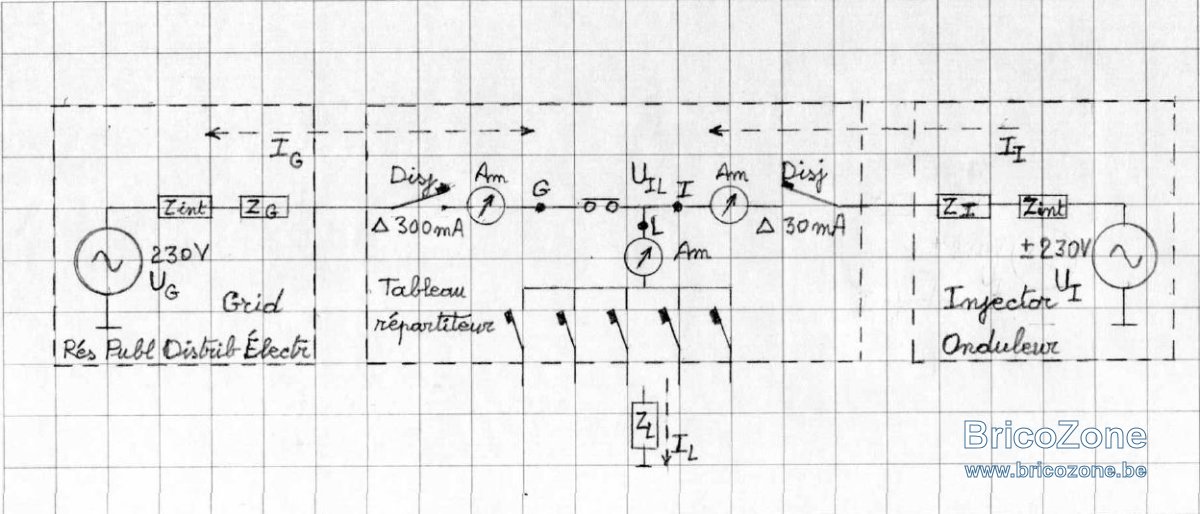 I_G
I_I
Disj
Am
G
U_IL
I
Am
Disj
Zint
Z_G
Δ 300mA
L
Δ 30mA
Z_I
Zint
230V
U_G
Am
±230V
U_I
Grid
Tableau
répartiteur
Injector
Onduleur
Rés Publ Distrib Électr
Z_L
I_L
BricoZone
www.bricozone.be